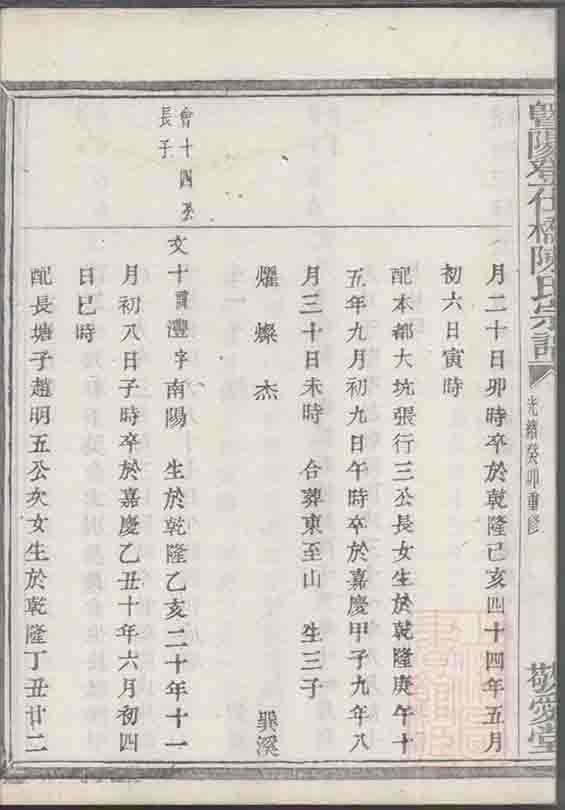 暨陽登仕橋陳氏宗譜
光緒癸卯重修
敬愛堂
月二十日卯時卒於乾隆己亥四十四年五月
初六日寅時
配本都大坑張行三公長女生於乾隆庚午十
五年九月初九日午時卒於嘉慶甲子九年八
月三十日未時 合葬東至山 生三子
燿 燦 杰 巽溪
會十四公
長子
文十 灃字南陽 生於乾隆乙亥二十年十一
月初八日子時卒於嘉慶乙丑十年六月初四
日巳時
配長塘子趙明五公次女生於乾隆丁丑廿二